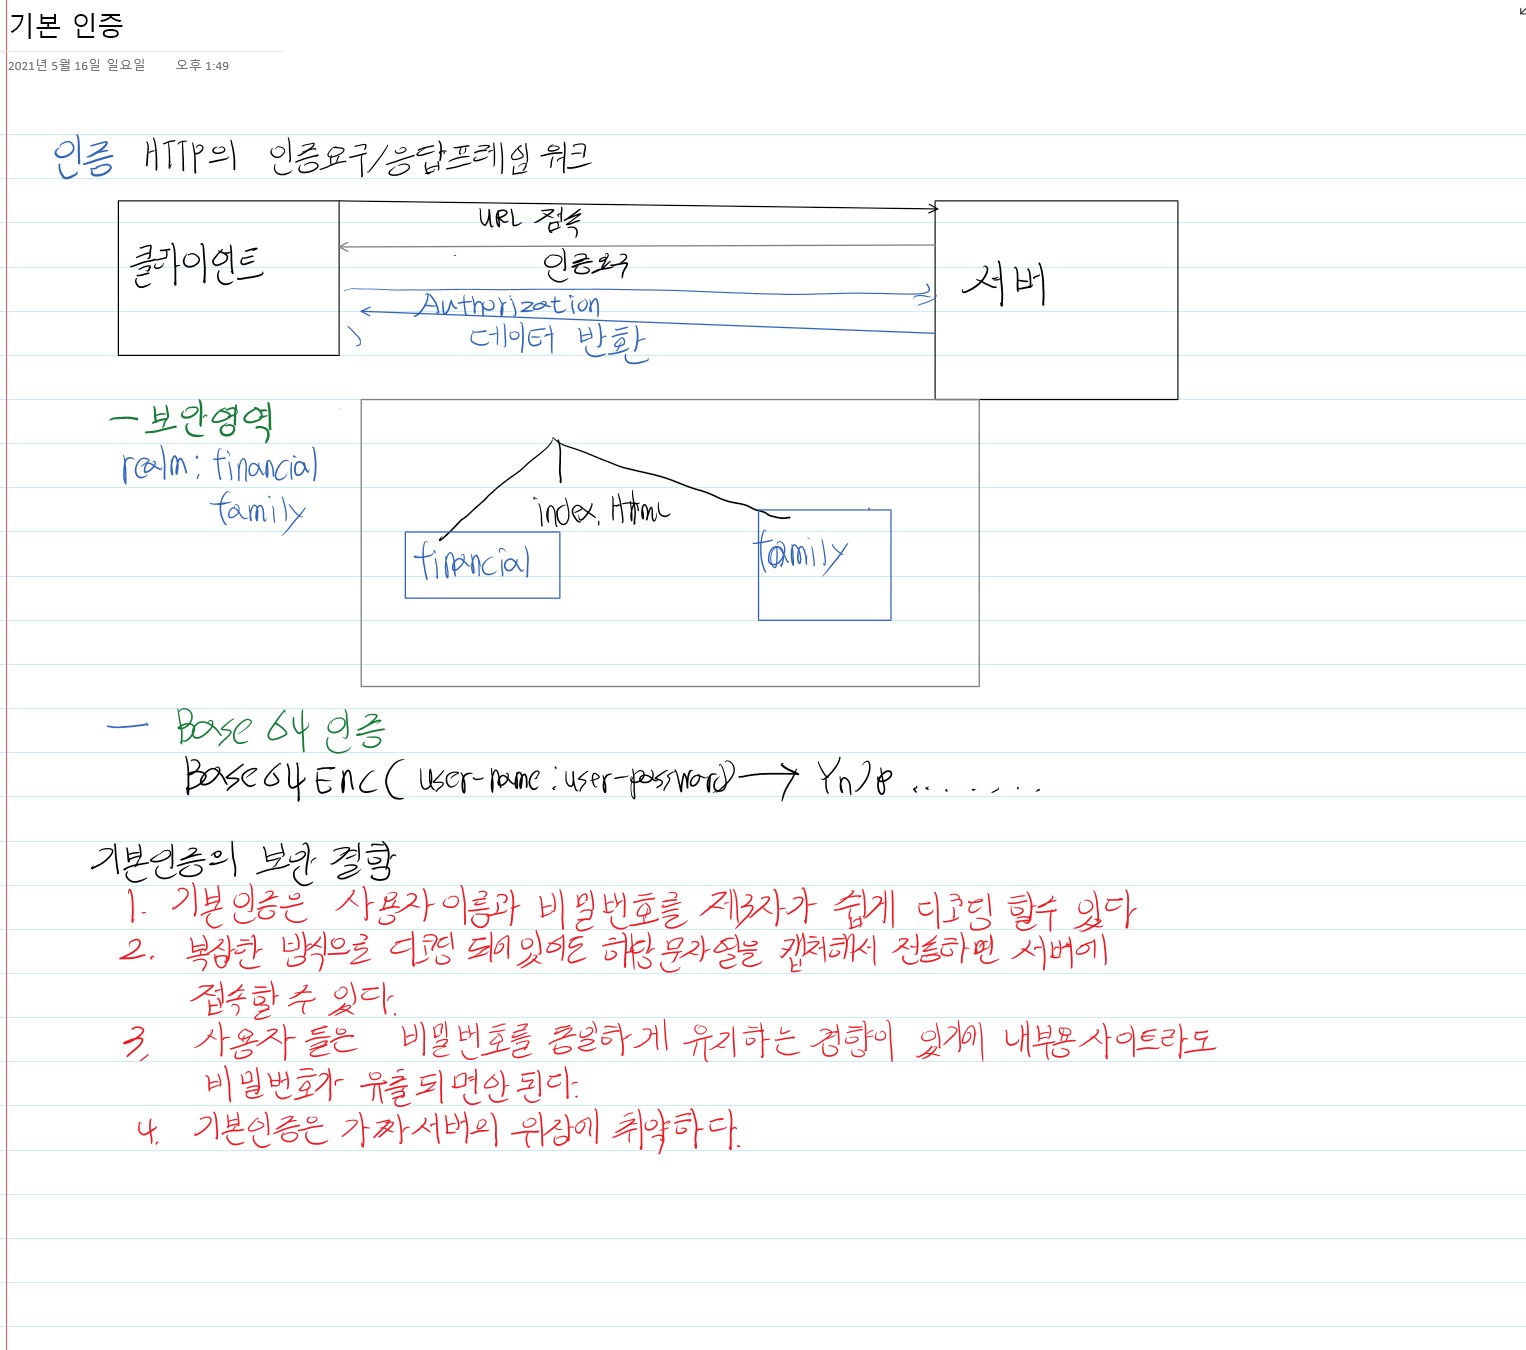 기본 인증
2021년 5월 16일 일요일 오후 1:49
인증 HTTP의 인증요구/응답프레임 워크
URL 접속
클라이언트
인증요구
서버
Authorization
데이터 반환
- 보안영역
realm: financial
family
index.Html
financial
family
- Base 64 인증
Base64 Enc( user-name:user-password) → Yn
기본인증의 보안 결함
1. 기본인증은 사용자이름과 비밀번호를 제3자가 쉽게 디코딩 할수 있다
2. 복잡한 방식으로 디코딩 되어있어도 해당문자열을 캡처해서 전송하면 서버에
접속할 수 있다.
3. 사용자 들은 비밀번호를 동일하게 유지하는 경향이 있기에 내부용사이트라도
비밀번호가 유출되면안된다.
4. 기본인증은 가짜서버의 위장에 취약하다.